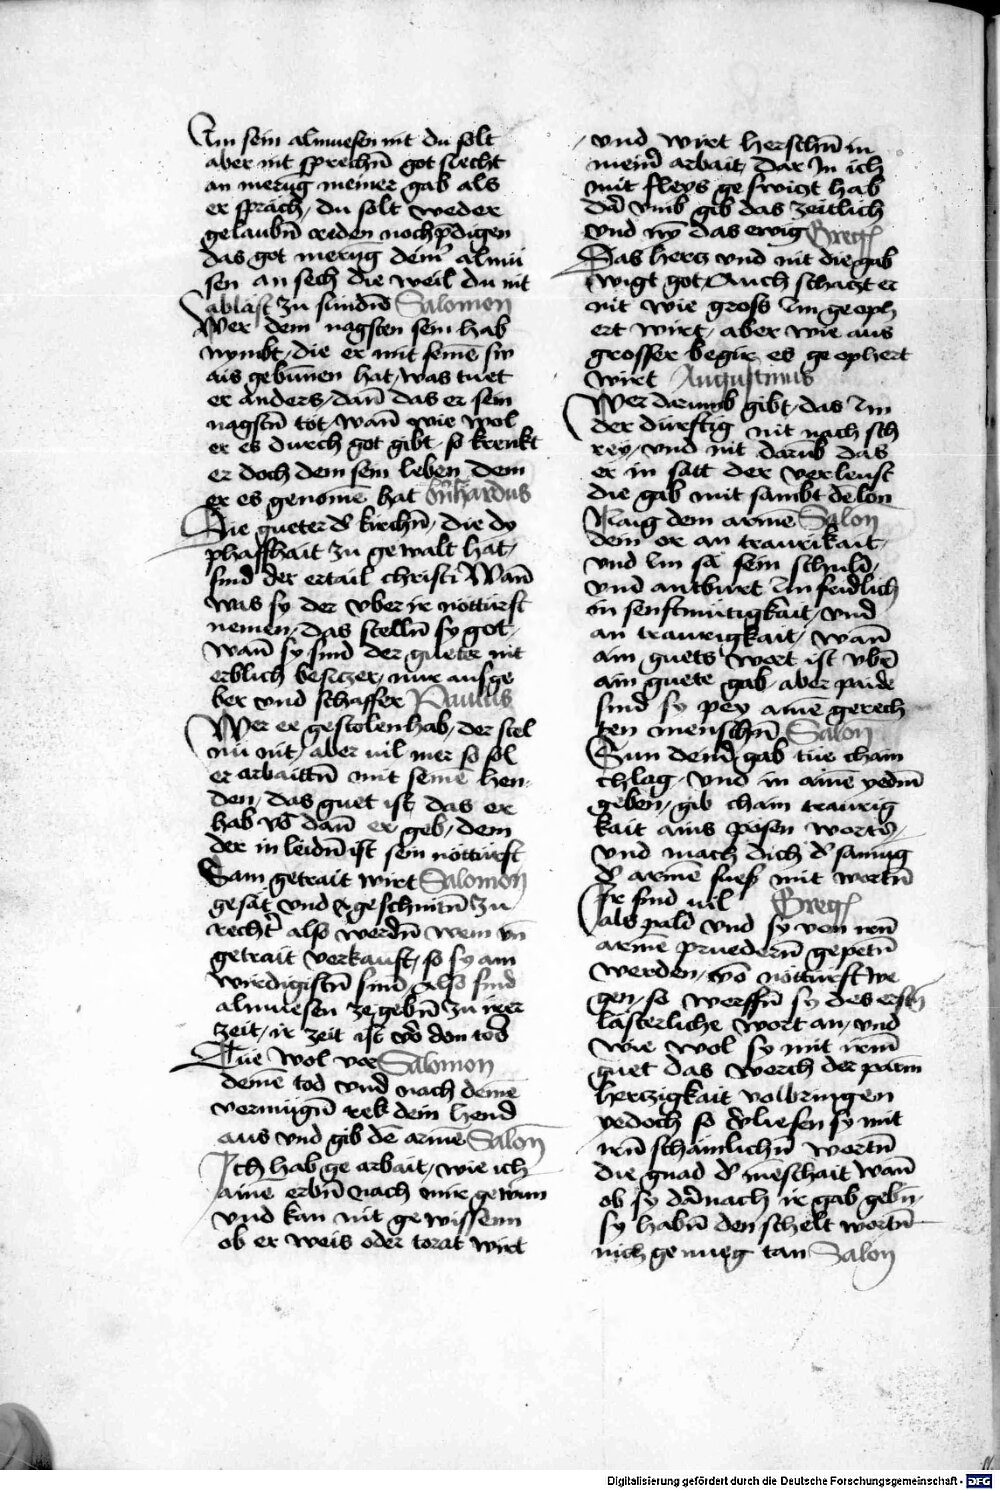 Im sein almuesen nit du solt
aber nit sprechn̄ got slecht
an merūg meiner gab als
er sprach, du solt weder
gelaubn̄ reiden noch p̄digen
das got merūg dem̄ almu
sen an sech die weil du nit
ablast zu sundn̄ Salomon
Wer dem nagsten sein hab
nymbt, die er mit seinē sw
ais gebunnen hat, was tuet
er anders, dan̄ das er sein
nagstn̄ tot, wan̄ wie wol
er es durch got gibt, so krenkt
er doch dem sein leben dem
er es genomē hat Bn̄hardus
Die gueter d' kirchn̄, die dy
phaffhait zu gewalt hat,
sind der ertail christi Wan̄
was sy der vber ir notturft
nemen, das stelln̄ sy got,
wan̄ sy sind der gueter nit
erblich besiczer, nur ausge
ber vnd schaffer Paulus
Wer er gestolen hab, der stel
nu nit, aber vil mer so sol
er arbaittn̄ mit seinē hen
den, das guet ist das er
hab vō dan̄ er geb, dem
der in leidn̄ ist sein notturft
Sam getrait wirt Salomon
gesat vnd geschnitn̄ zu
recht' also werdn̄ wein vn̄
getrait verkauft, so sy am
wirdigistn̄ sind, also sind
almuesen ze gebn̄ zu irer
zeit, ir zeit ist vo' dem tod
Tue wol vor Salomon
deinē tod vnd nach deinē
vermugn̄ rek dein hend
aus vnd gib dē armē Salon̄
Ich hab gearbait, wie ich
ainē erbn̄ nach mir gewun
vnd kan nit gewissenn
ob er weis oder torat wirt
, vnd wirt herschn̄ in
mein' arbait, dar in ich
mit fleys geswiczt hab
dar vmb gib das zeitlich
vnd ny das ewig Greg
Das hercz vnd nit die gab
wigt got Auch schaczt er
nit wie gross im geoph
ert wirt, aber wie aus
grosser begir es geophert
wirt Augustinus
Wer darumb gibt, das im
der durftig nit nach sch
rey, vnd nit darūb das
er in satt der verleust
die gab mit sambt dē lon
Naig dem armē Salon
dein or an traurikait,
vnd im sā sein schuld,
vnd antburt im fridlich
in senftmutigkait, vnd
an traurigkait, wan̄
ain guets wort ist vbr̄
ain guete gab, aber paide
sind sy pey ainē gerech
ten menschn̄ Salon
Sun dein' gab tue chain
chlag, vnd in ainē yedn̄
geben, gib chain traurig
kait ains posen worts,
vnd mach dich d' samūg
d' armē suess mit wortn̄
Ir sind vil Greg
als pald vnd sy von irn̄
armē pruedern̄ gepetn̄
werden, vō notturft we
gen, so werffn̄ sy des erstn̄
lasterliche wort an, vnd
wie wol sy mit irem
guet das werch der parm
herczigkait volbringen
yedoch so v'liesen sy mit
irn̄ schamlichn̄ wortn̄
die gnad d' mēschait wan̄
ob sy darnach ir gab gebn̄
sy habn̄ den schelt wortn̄
nich genueg tan Salon
Digitalisierung gefördert durch die Deutsche Forschungsgemeinschaft - DFG